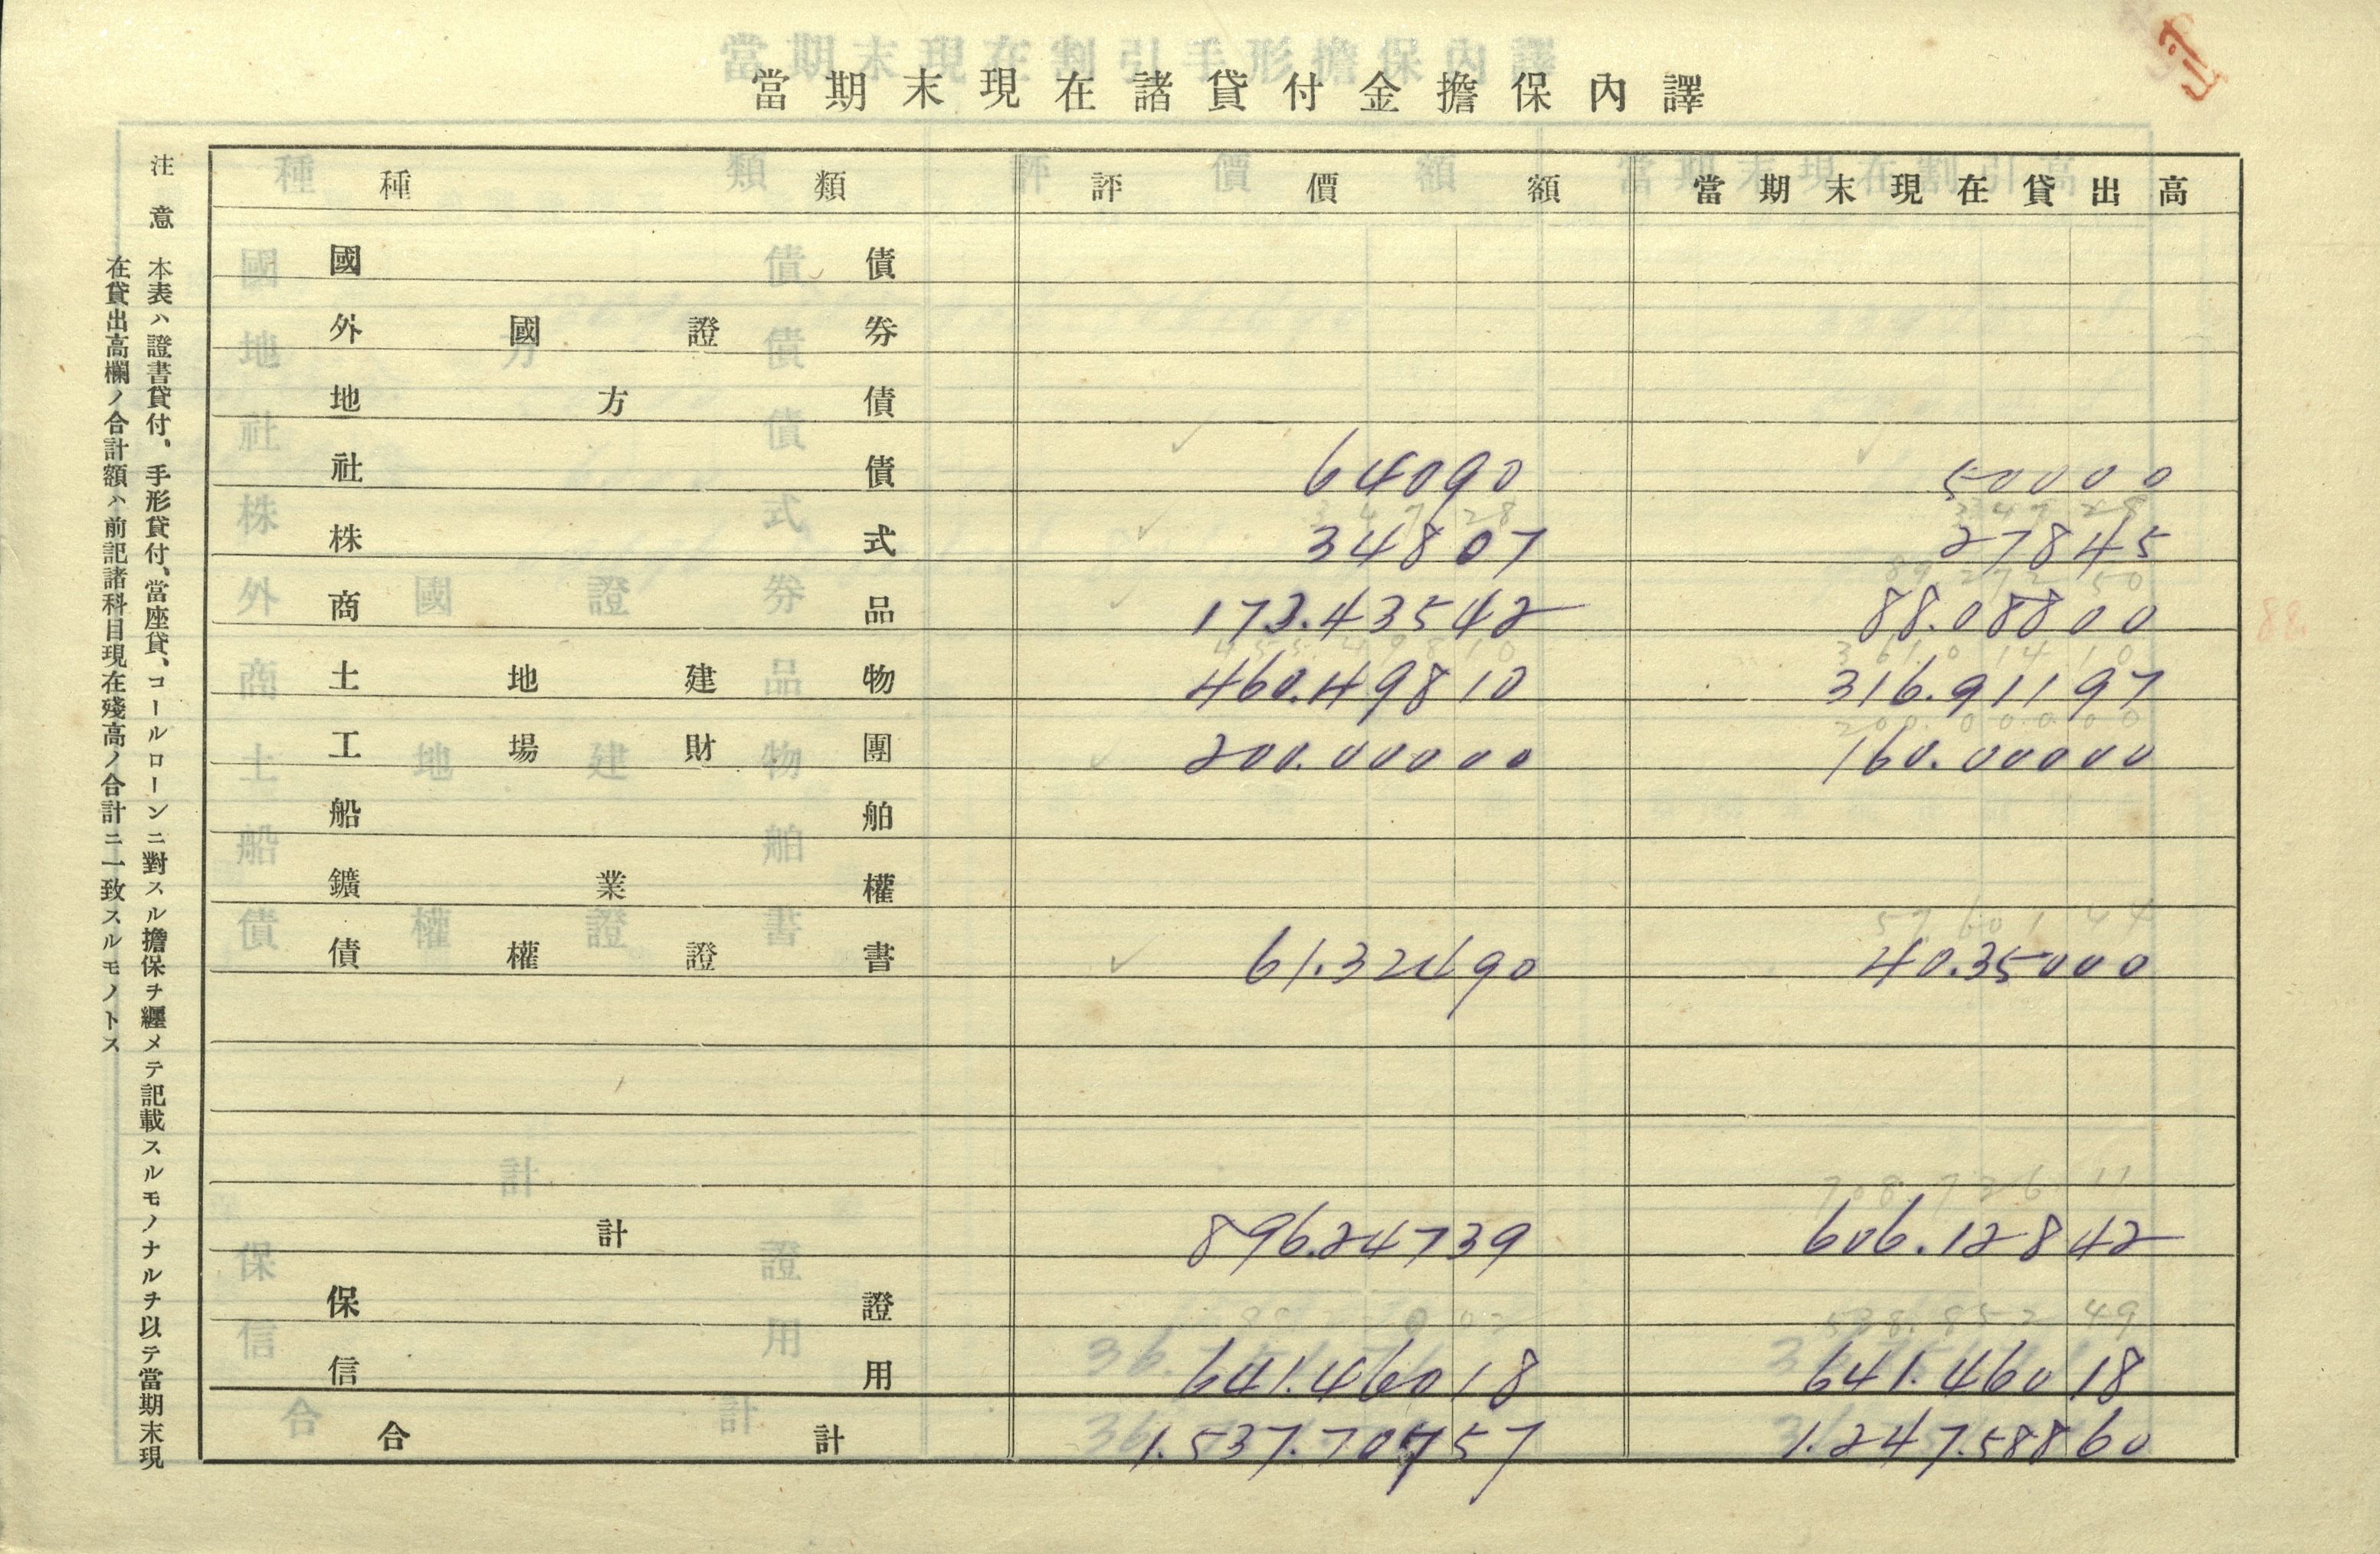 當期末現在諸貸付金擔保內譯
種類 評價額 當期末現在貸出高
國債
外國證券
地方債
社債 640 90 500 00
株式 348 07 278 45
商品 173.435 42 88.088 00
土地建物 460.498 10 316.911 97
工場財團 200.000 00 160.000 00
船舶
鑛業權
債權證書 61.324 90 40.350 00
計 896.247 39 606.128 42
保證
信用 641.460 18 641.460 18
合計 1.537.707 57 1.247.588 60
注意 本表ハ證書貸付、手形貸付、當座貸、コールローンニ對スル擔保ヲ纒メテ記載スルモノナルヲ以テ當期末現
在貸出高欄ノ合計額ハ前記諸科目現在殘高ノ合計ニ一致スルモノトス